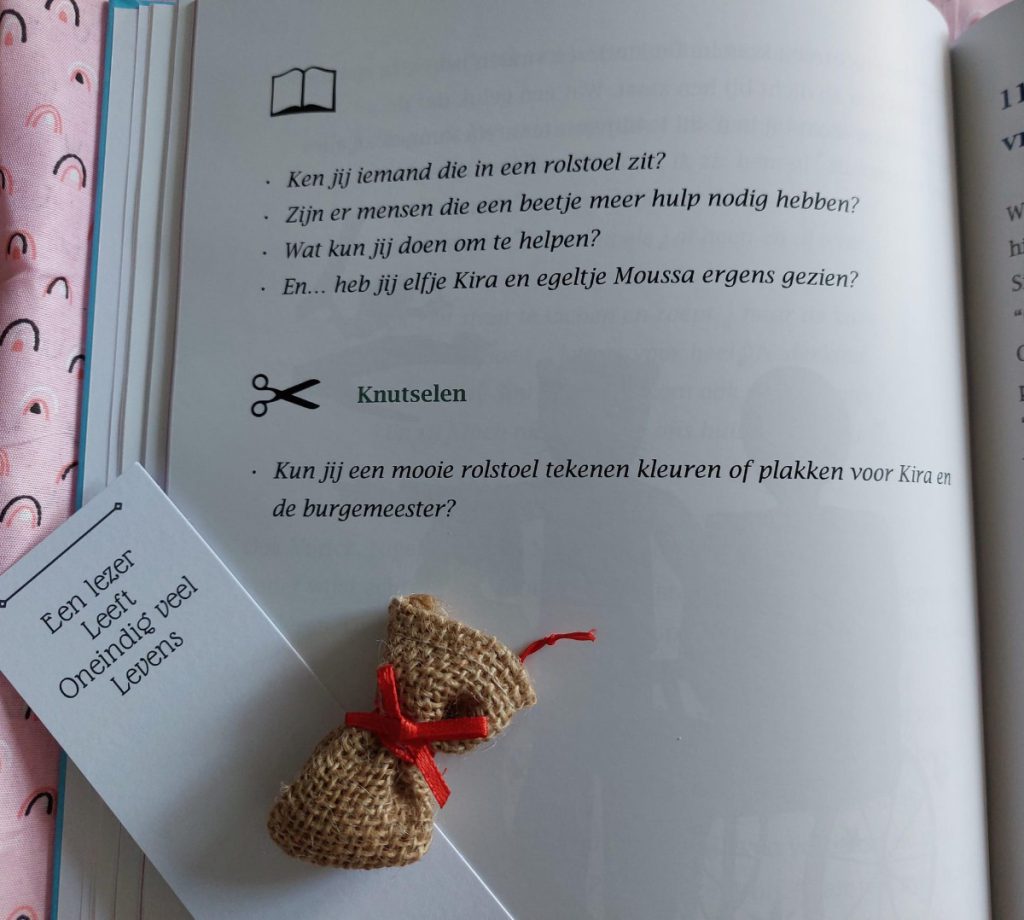 · Ken jij iemand die in een rolstoel zit?
· Zijn er mensen die een beetje meer hulp nodig hebben?
· Wat kun jij doen om te helpen?
· En... heb jij elfje Kira en egeltje Moussa ergens gezien?
Knutselen
· Kun jij een mooie rolstoel tekenen kleuren of plakken voor Kira en
de burgemeester?
Een lezer
Leeft
Oneindig veel
Levens
11